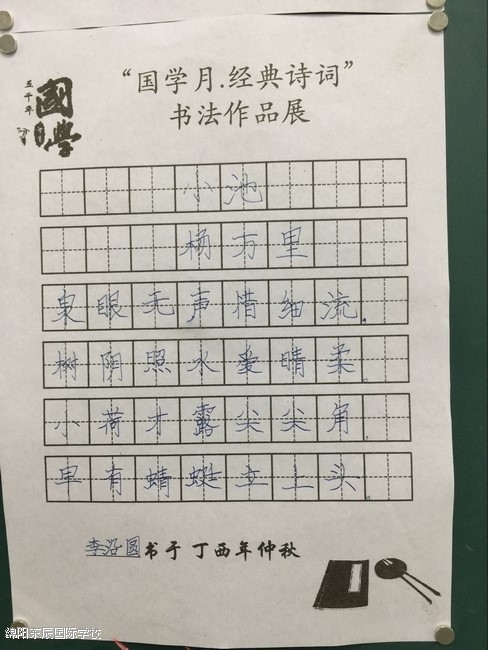 “国学月.经典诗词”
书法作品展
五千年
國學
小池
杨万里
泉眼无声惜细流,
树阴照水爱晴柔。
小荷才露尖尖角,
早有蜻蜓立上头。
李沿圆书于丁酉年仲秋
绵阳东辰国际学校